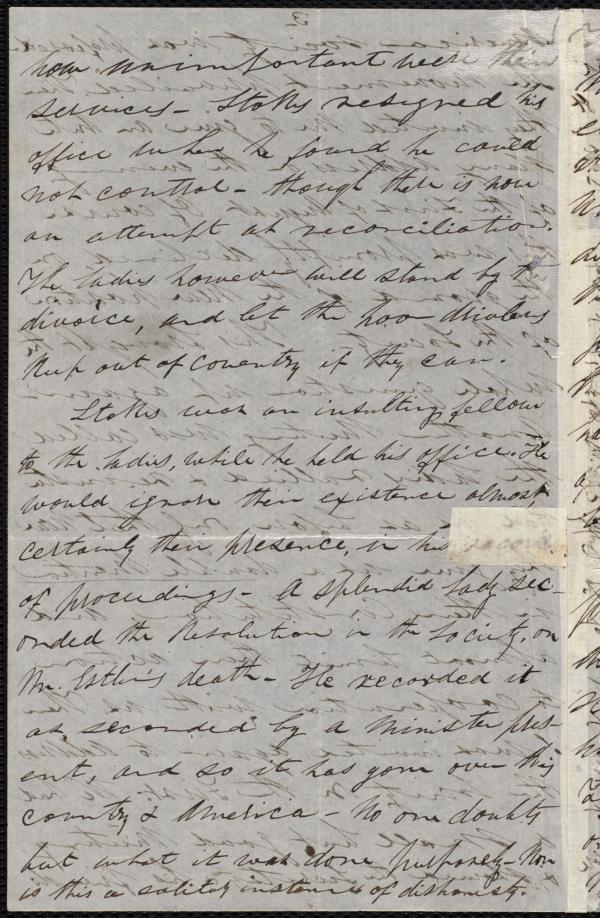 3
how unimportant were their
services - Stokes resigned his
office when he found he could
not control - though there is now
an attempt at reconciliation.
The ladies however will stand by the
divorce, and let the poor
keep out of Coventry if they can.
Stokes was an insulting fellow
to the ladies, while he held his office. He
would ignore their existence almost,
certainly their presence, in his record
of proceedings - A splendid lady sec-
onded the Resolution in the Society, on
Mr. Estlin's death - He recorded it
as seconded by a minister pres-
ent, and so it has gone over this
country & America - No one doubts
but what it was done purposely - Nor
is this a solitary instance of dishonesty.